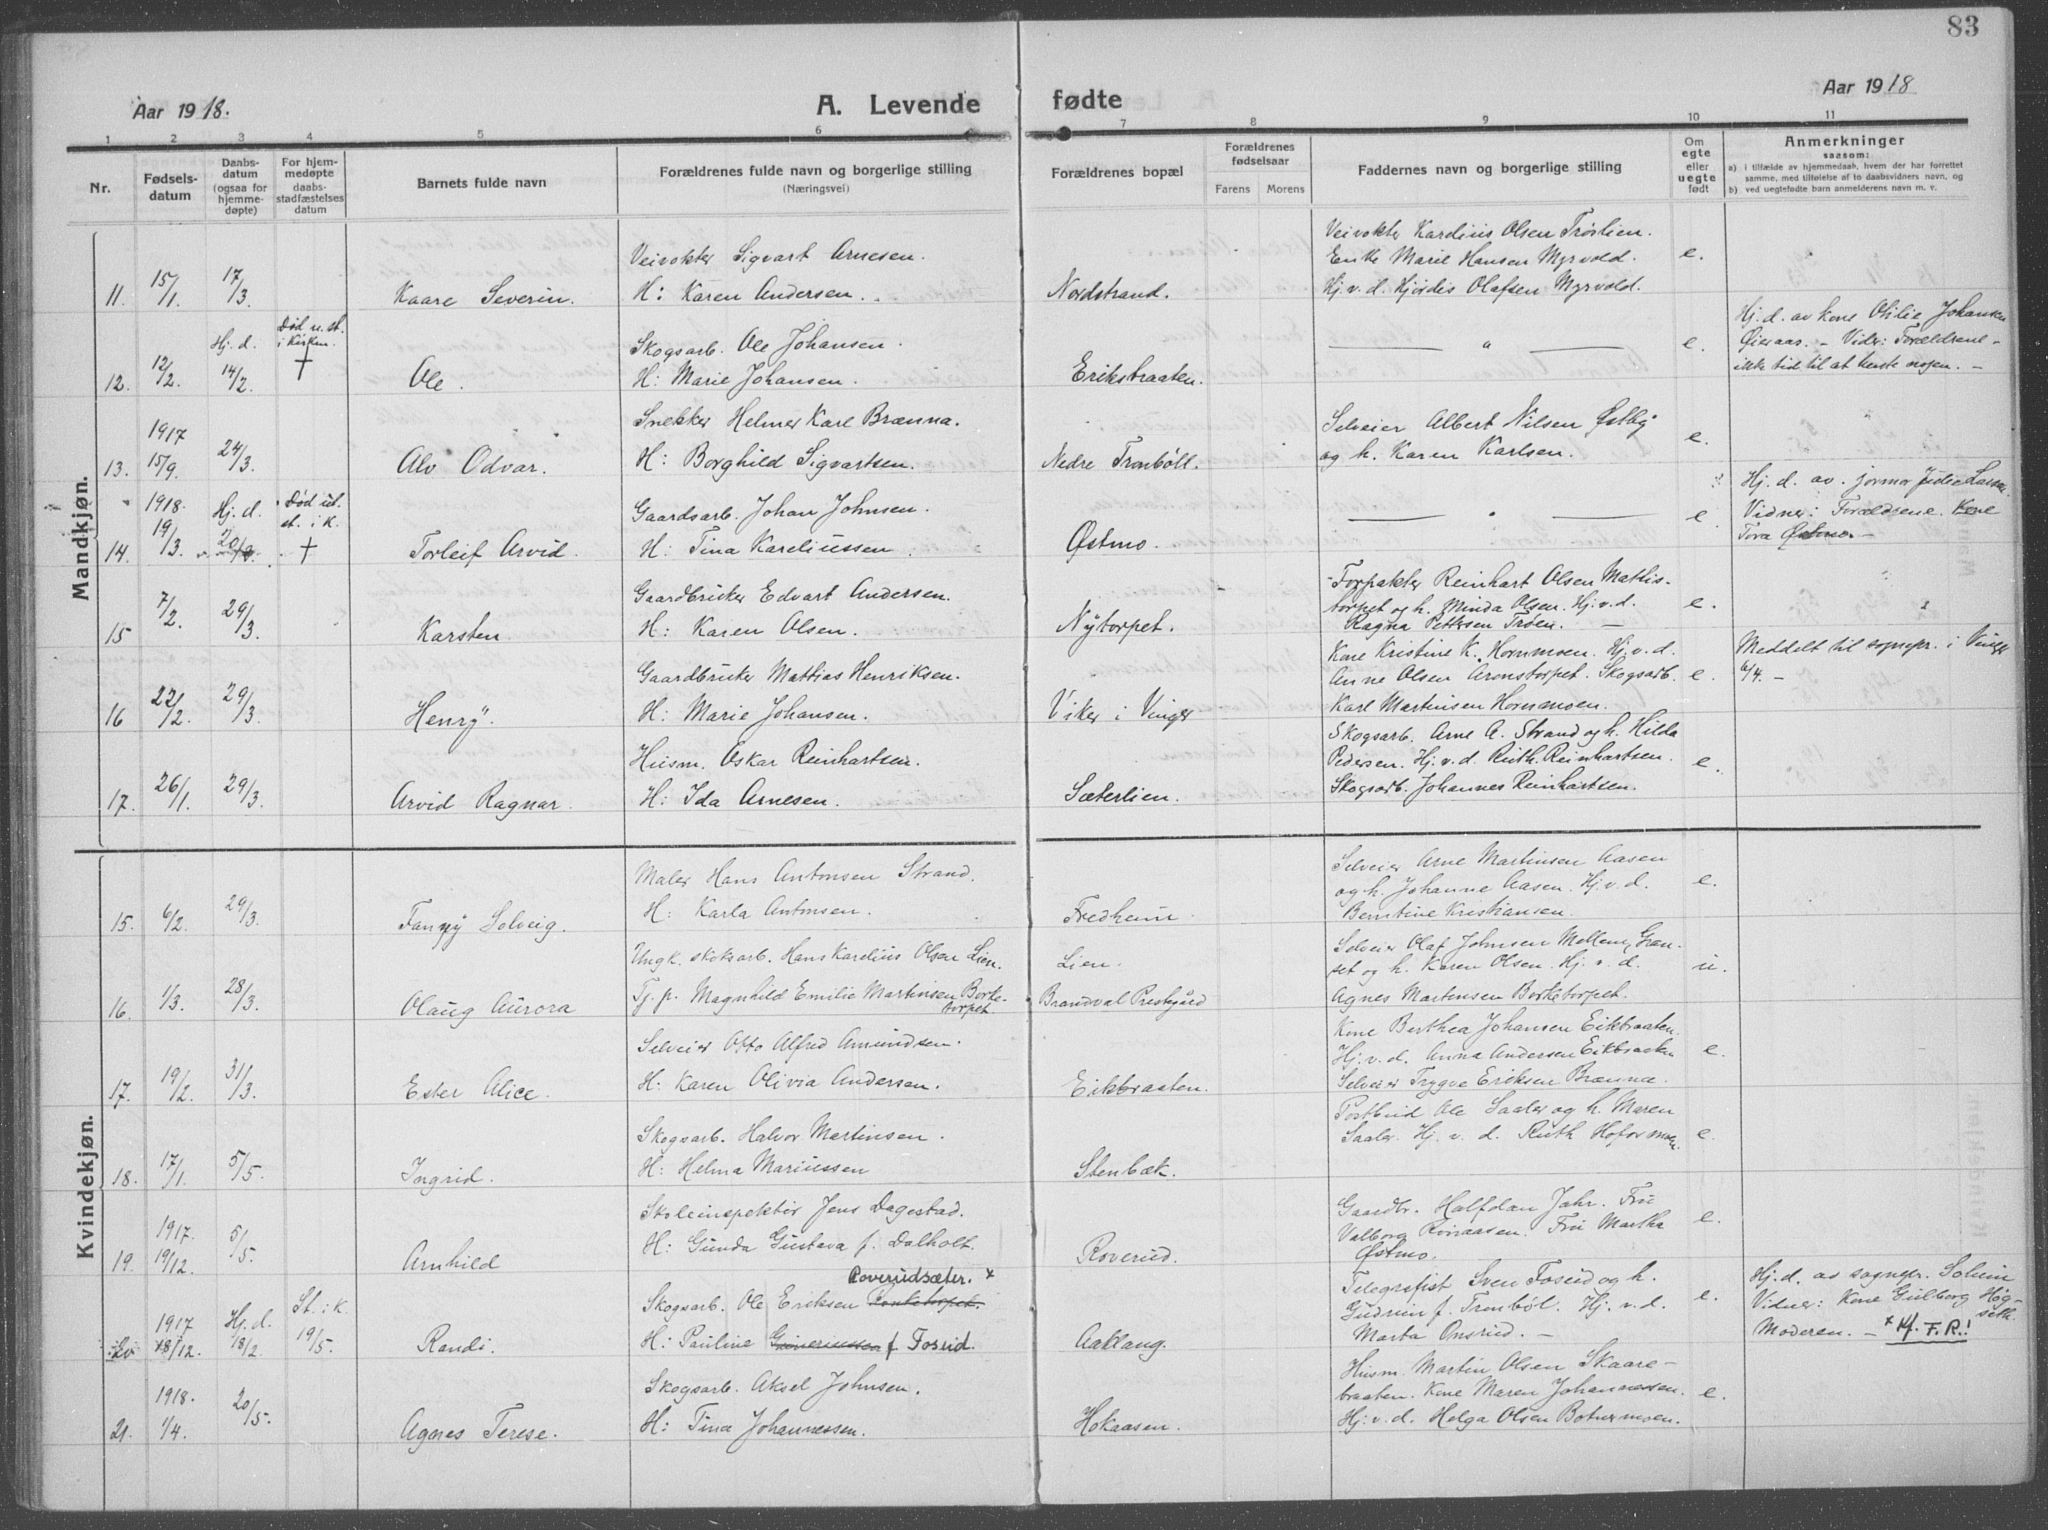 83
Aar 1918.
A. Levende fødte
Aar 1918
1 2 3 4 5 6 7 8 9 10 11
Nr.
Fødsels-
datum
Daabs-
datum
(ogsaa for
hjemme-
døpte)
For hjem-
medøpte
daabs-
stadfæstelses
datum
Barnets fulde navn
Forældrenes fulde navn og borgerlige stilling
(Næringsvei)
Forældrenes bopæl
Forældrenes
fødselsaar
Farens Morens
Faddernes navn og borgerlige stilling
Om
egte
eller
uegte
født
Anmerkninger
saasom:
a) i tilfælde av hjemmedaab, hvem der har forrettet
samme, med tilføielse af to daabsvidners navn, og
b) ved uegtefødte barn anmelderens navn m. v.
Mandkjøn.
Veivokter Sigvart Arnesen.
Veivokter Kardius Olsen Trøslien.
Enke Marie Hansen Myrvold. e.
11. 15/1. 17/3. Kaare Severin. H: Karen Andersen. Nordstrand. Hj. v. d. Hjørdis Olafsen Myrvold.
Hj. d. Død u. st. i Kirken. Skogsarb. Ole Johansen. — " — e. Hj. d. av kone Otilie Johansen
Øieraas. — Vidner: Forældrene —
12. 12/2. 14/2. † Ole. H: Marie Johansen. Erikstraaten. ikke tid til at hente nogen. —
1917 Snekker Helmer Karl Brænna. Selveier Albert Nilsen Østby e.
13. 15/9. 24/3. Alv Odvar. H: Borghild Sigvartsen. Nedre Tronbøll. og h. Karen Karlsen.
1918. Hj. d. Død ut. st. i k. Gaardsarb. Johan Johnsen. — " — e. Hj. d. av. jormor Julie Larsen.
Vidner: Forældrene. Kone
14. 19/3. 20/3. † Torleif Arvid. H: Tina Kareliussen Østmo. Tora Østmo. —
Gaardbruker Edvart Andersen. Forpakter Reinhart Olsen Mattis-
torpet og h. Minda Olsen. Hj. v. d. e.
15 7/2. 29/3. Karsten H: Karen Olsen. Nytorpet. Ragna Pettersen Trøen. —
Gaardbruker Mattias Henriksen. Kone Kristine K. Hornmoen. Hj. v. d. Meddelt til sognepr. i Vinger
Anne Olsen Aronstorpet. Skogsarb. e. 6/4. —
16 22/2. 29/3. Henry. H: Marie Johansen. Viker i Vinger Karl Martinsen Hornmoen.
Husm. Oskar Reinhartsen. Skogsarb. Arne A. Strand og h. Hilda
Pedersen. Hj. v. d. Ruth Reinhartsen. e.
17. 26/1. 29/3. Arvid Ragnar. H: Ida Arnesen. Sæterlien. Skogsarb. Johannes Reinhartsen.
Kvindekjøn.
Maler Hans Antonsen Strand. Selveier Arne Martinsen Aasen
og h. Johanne Aasen. Hj. v. d. e.
15. 6/2. 29/3. Fanny Solveig. H: Karla Antonsen. Fredheim. Berntine Kristiansen.
Ungk. skoksarb. Hans Kardius Olsen Lien. Lien. Selveier Olaf Johnsen Mellem Græn-
set og h. Karen Olsen. Hj. v. d. u.
16. 1/3. 28/3. Olaug Aurora Tj. p. Magnhild Emilie Martinsen Borke-
torpet. Brandval Prestgård Agnes Martensen Borketorpet.
Selveier Otto Alfred Amundsen. Kone Berthea Johansen Eikbraaten.
Hj. v. d. Anna Andersen Eikbraaten e.
17. 19/2. 31/3. Ester Alice. H: Karen Olivia Andersen. Eikbraaten. Selveier Trygve Eriksen Brænna.
Skogsarb. Halvor Martinsen. Postbud Ole Saaler og h. Maren
Saaler. Hj. v. d. Ruth Hoformoen. e.
18. 17/1. 5/5. Ingrid. H: Helma Mariussen Stenbæk.
1917. Skoleinspektør Jens Dagestad. Gaardbr. Halfdan Jahr. Fru
Valborg Rønaasen. Fru Martha e.
19. 19/12. 5/5. Arnhild H: Gunda Gustava f. Dalholt. Roverud. Østmo.
Roverudsæter. x
1917 Hj. d. St. i k. Skogsarb. Ole Eriksen Telegrafist Sven Fosrud og h. Hj. d. av sognepr. Solum
Gudrun f. Tronbøl. Hj. v. d. e. Vidner: Kone Gulborg Høgseth.
18/12. 18/2. 19/5. Randi. H: Pauline f. Fosrud. Aaklang. Marta Onsrud. — Moderen. — x Kf. F. R.!
1918. Skogsarb. Aksel Johnsen. Husm. Martin Olsen Skaare-
braaten. Kone Maren Johannessen. e.
21. 1/4. 20/5. Agnes Terese. H: Tina Johannessen. Hokaasen. Hj. v. d. Helga Olsen Boturmoen.